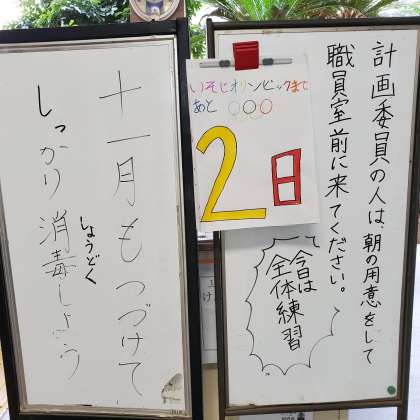 計画委員の人は、朝の用意をして
職員室前に来てください。
今日は
全体練習
いそじオリンピックまで
あと
2日
十一月もつづけて
しっかり消毒しよう
しょうどく